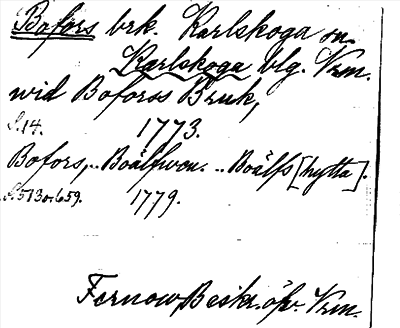 Bofors brk. Karlskoga sn
Karlskoga blg. Vrm.
wid Boforss Bruk,
S.14. 1773.
Bofors, .. Boälfwen. .. Boälfs[hytta].
S.513o.659. 1779.
Fernow Beskr. öfv. Vrm.